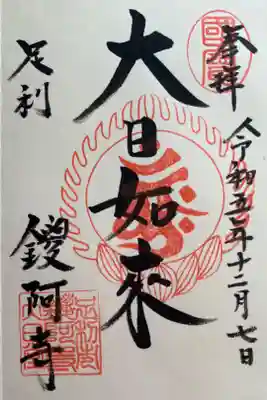 奉拝
令和五年十二月七日
大日如来
足利
鑁阿寺